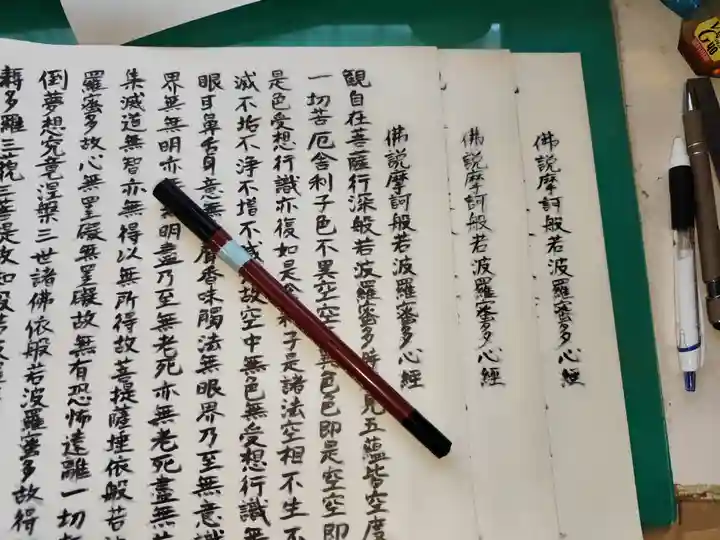 佛説摩訶般若波羅蜜多心経
佛説摩訶般若波羅蜜多心経
佛説摩訶般若波羅蜜多心経
観自在菩薩行深般若波羅蜜多時見五蘊皆空度
一切苦厄舎利子色不異空空異色色即是空空即
是色受想行識亦復如是舎利子是諸法空相不生不
滅不垢不浄不増不減故空中無色無受想行識無
眼耳鼻舌身意無声香味觸法無眼界乃至無意識
界無無明亦無明盡乃至無老死亦無老死盡無苦
集滅道無智亦無得以無所得故菩提薩埵依般若波
羅蜜多故心無罣礙無罣礙故無有恐怖遠離一切
倒夢想究竟涅槃三世諸佛依般若波羅蜜多故得
耨多羅三藐三菩提故知般若波羅